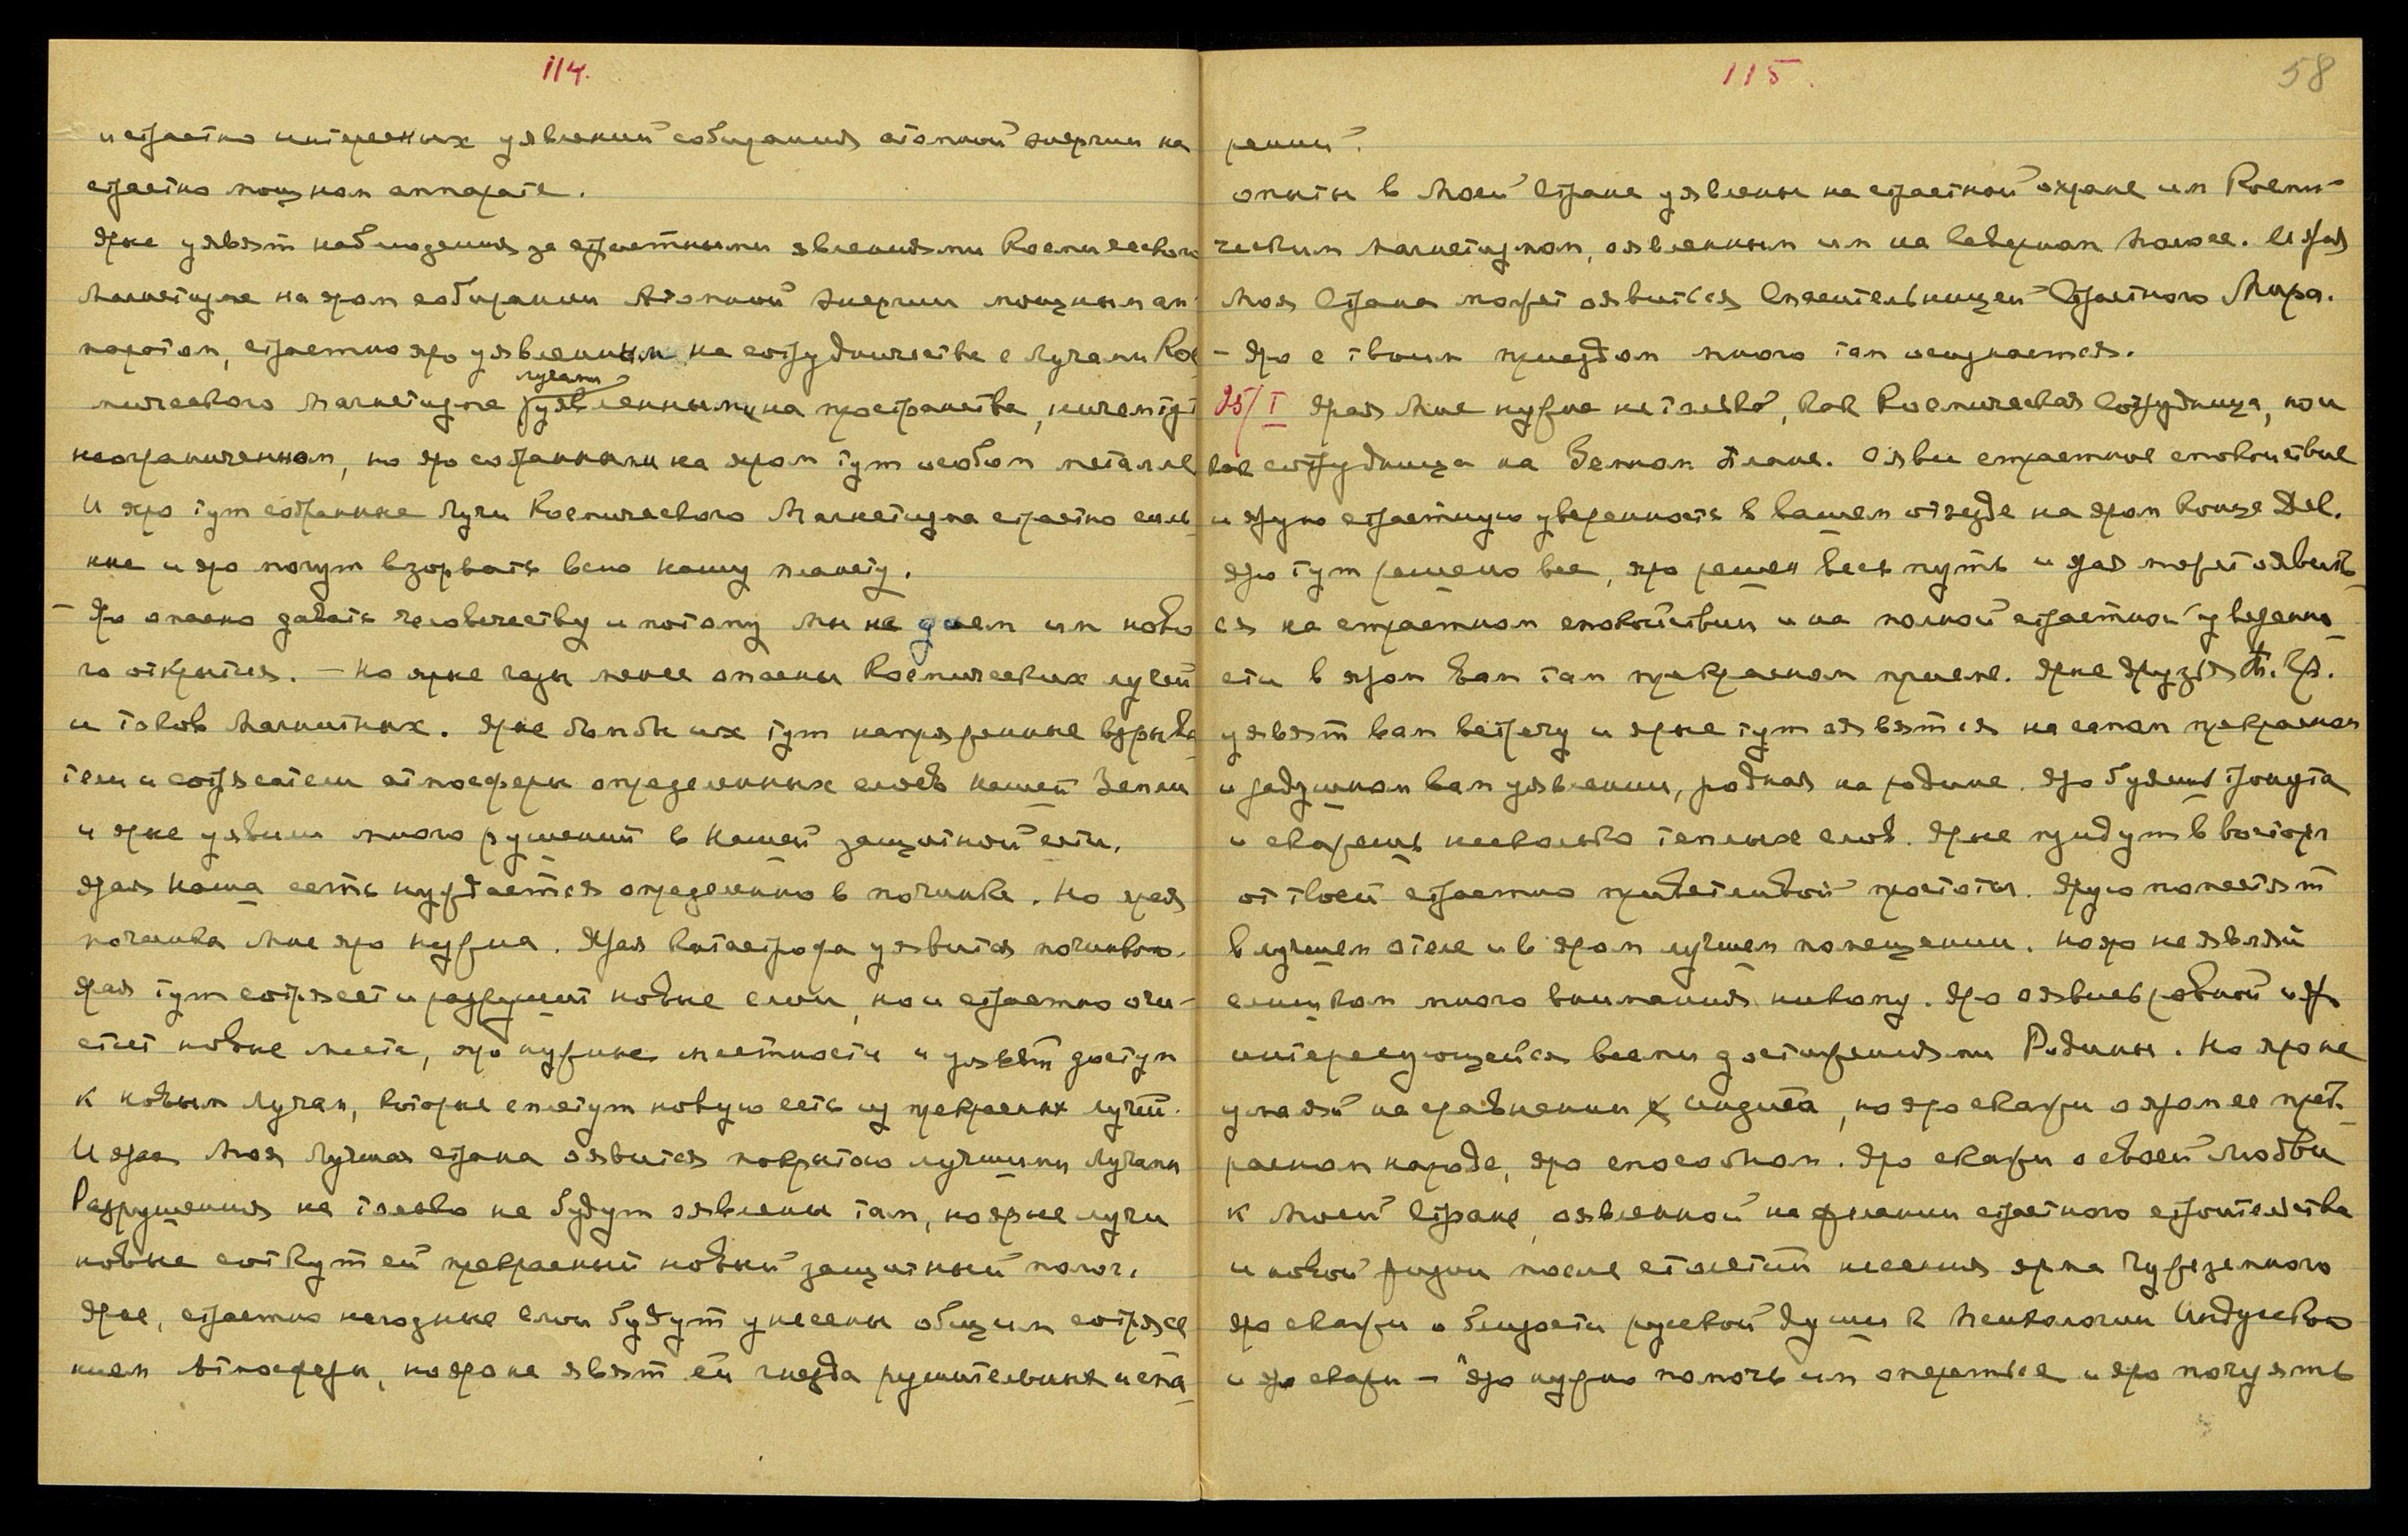 114.
и страстно интересных уявлений собирания атомной энергии на
страстно мощном аппарате.
Ярые уявят наблюдения за страстными явлениями Космического
Магнетизма на яром собирании Атомной энергии мощным ап-
паратом, страстно яро уявленным на сотрудничестве с лучами Кос
мического Магнетизма лучами уявленными на пространстве, ничем тут
неограниченном, но яро собранными на яром тут особом металле
И яро тут собранные лучи Космического Магнетизма страстно силь
ные и яро могут взорвать всю нашу планету.
– Яро опасно давать человечеству и потому мы не даем им ново
го открытия. – Но ярые газы менее опасны Космических лучей
и токов Магнитных. Ярые бомбы их тут напряженные взрыва
тели и сотрясатели атмосферы определенных слоев нашей Земли
и ярые уявили много рушений в Нашей защитной сети.
Ярая Наша сеть нуждается определенно в починке. Но ярая
починка Мне яро нужна. Ярая катастрофа уявится починкою.
Ярая тут сотрясет и разрушит новые слои, но и страстно очи-
стит новые места, яро нужные местности и уявят доступ
к новым лучам, которые сплетут новую сеть из прекрасных лучей.
И ярая Моя лучшая страна оявится покрытою лучшими лучами
Разрушения не только не будут оявлены там, но ярые лучи
новые соткут ей прекрасный новый защитный полог.
Ярые, страстно негодные слои будут унесены общим сотрясе
нием Атмосферы, но яро не явят ей гнезда рушительных испа
115.
58
рений.
Опыты в Моей Стране уявлены на страстной охране им Косми-
ческим Магнетизмом, оявленным им на Северном Полюсе. И ярая
Моя Страна может оявиться Спасительницей Страстного Мира.
– Яро с твоим приездом много там осознается.
25/I Ярая Мне нужна не только, как Космическая Сотрудница, но и
как сотрудница на Земном Плане. Ояви страстное спокойствие
и ярую страстную уверенность в вашем отъезде на яром конце Дел.
Яро тут решено все, яро решен весь путь и ярая может оявить
ся на страстном спокойствии и на полной страстной уверенно
сти в яром Вам там прекрасном приеме. Ярые друзья
уявят вам встречу и ярые тут оявятся на самом прекрасном
и радушном вам уявлении, родная на родине. Яро будешь тронута
и скажешь несколько теплых слов. Ярые придут в восторг
от твоей страстно приветливой простоты. Ярую поместят
в лучшем отеле и в яром лучшем помещении. Но яро не являй
слишком много внимания никому. Яро оявись ровной и яро
интересующейся всеми достижениями Родины. Но яро не
умаляй на сравнении Индию, но яро скажи о яром ее прек-
расном народе, яро способном. Яро скажи о своей любви
к Моей Стране, оявленной на желании страстного строительства
и новой жизни после столетий несения ярма Чужеземного
Яро скажи о близости русской души к психологии Индусской
и яро скажи – "Яро нужно помочь им опериться и яро почуять